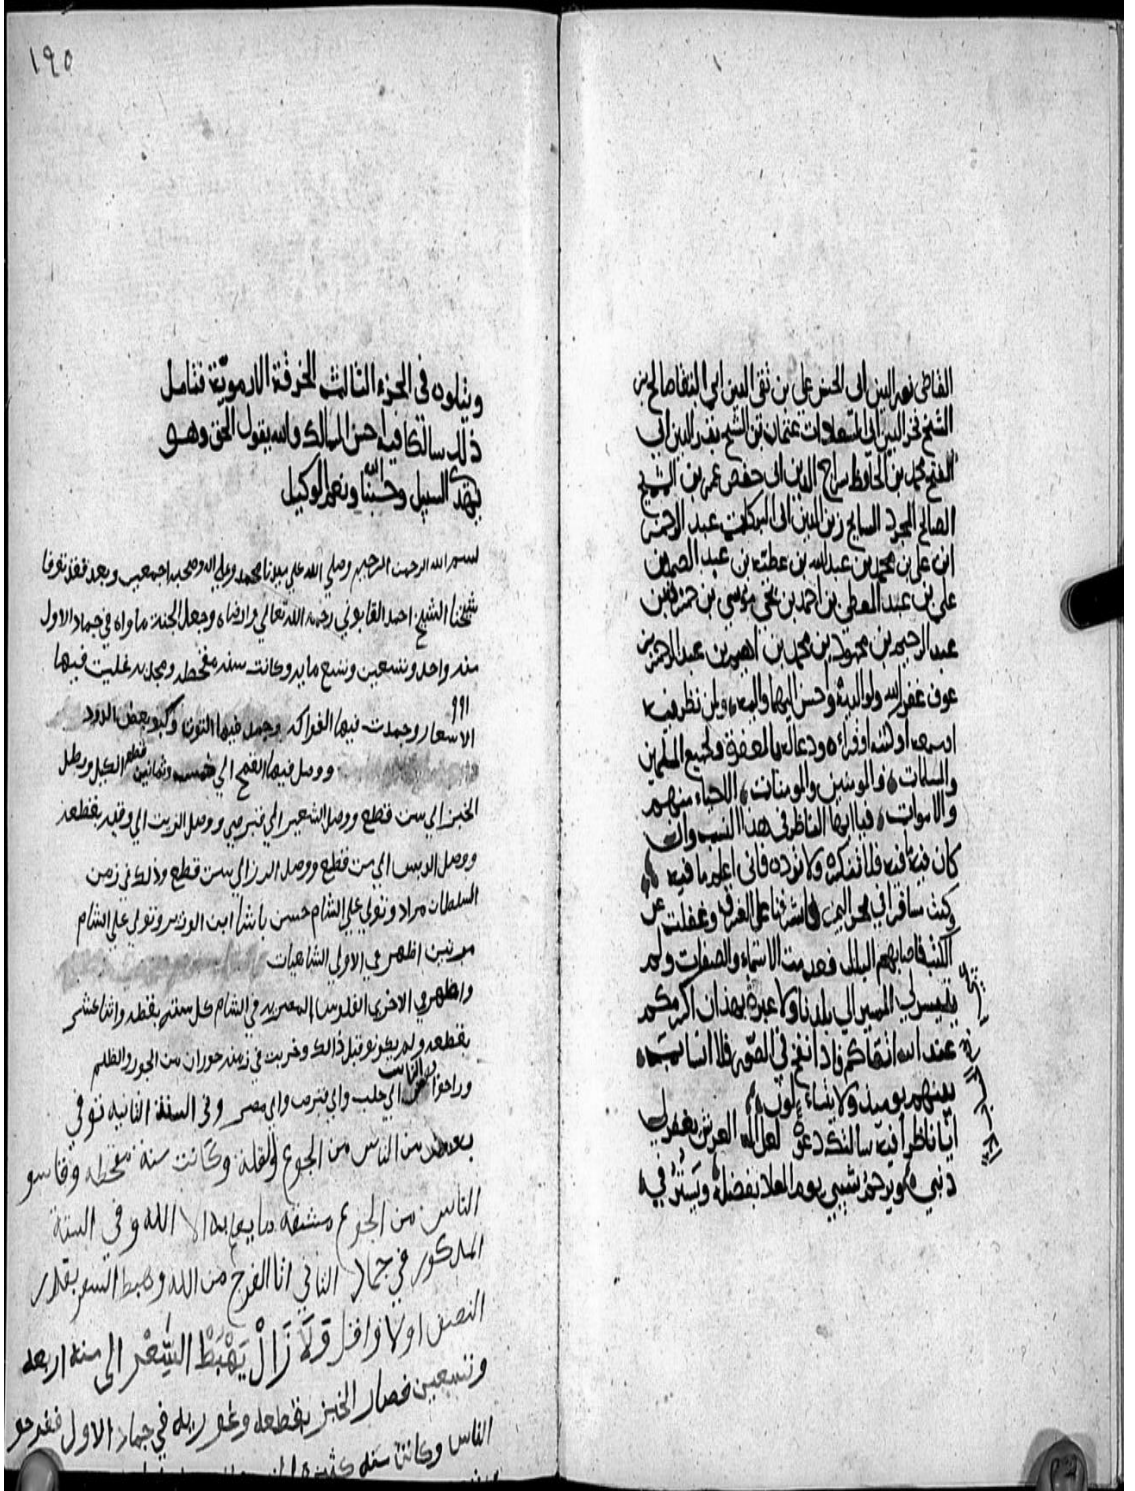 القاضي نور الدين ابى الحسن على بن تقى الدين ابى التقا صالح بن
الشيخ فخر الدين ابى السعادات عثمان بن الشيخ بدر الدين ابى
الفتح محمد بن الحافظ سراج الدين ابى حفص عمر بن الشيخ
الصالح المجرد السايح زين الدين ابى البركات عبد الرحمن
ابن على بن محمد بن عبد الله بن عطيه بن عبد الصمد بن
على بن عبد المعطى بن احمد بن يحيى بن موسى بن حمزة بن
عبد الرحيم بن محمود بن محمد بن ابراهيم بن عبد الرحمن بن
عوف غفر الله ولوالديه واحسن اليهما واليه ولمن نظر فيه
او سمعه او كتبه او قراءه ودعا له بالمغفرة ولجميع المسلمين
والمسلمات والمومنين والمومنات الاحياء منهم
والاموات فيا ايها الناظر فى هذا النسب وان
كان فيه فلا تنكره ولا ترده فانى اعلم ما فيه
وكنت سافر فى بحر اليمن فاشرفنا على الغرق وغفلت عن
الكتب فاصابهم البلل فعدمت الاسماء والصفات ولم
يتيسر لى المسير الى بلدنا ولا عبرة بهذا ان اكرمكم
عند الله اتقاكم فاذا نفخ فى الصور فلا انساب
بينهم يوميذ ولا يتساءلون
ايا ناظرا فيه سالتك دعوة لعل اله العرش يغفر لى
ذنبي ويرحم شيبي يوم العلا بفضله ويستر فيه
١٩٥
ويتلوه فى الجزء الثالث الخرقة الارموية نتامل
ذلك سالكا فيه احسن المسالك والله يقول الحق وهو
يهدى السبيل وحسبنا الله ونعم الوكيل
بسم الله الرحمن الرحيم وصلي الله علي سيدنا محمد وعلي اله وصحبه اجمعين وبعد فقد توفا
شيخنا الشيخ احمد القابوني رحمه الله تعالي وارضاه وجعل الجنة ماواه في جماد الاول
سنه واحد وتسعين وتسع مايه وكانت سنه مقحطه ومجدبه غليت فيها
٩٩١
الاسعار وجمدت فيها الفواكه وجمد فيها التوت وكبو بعض الدود
ووصل فيها القمح الي خمسه وثمانين قطعه الكيل ورطل
الخبز الي ست قطع ووصل الشعير الي ووصل الزيت الي وقيه بقطعه
ووصل الدبس الي ست قطع ووصل الرز الي ست قطع وذلك في زمن
السلطان مراد وتولي علي الشام حسن باشا ابن الوزير وتولي علي الشام
مرتين اظهر في الاولي الشاهيات
واظهر في الاخري الفلوس المصريه في الشام كل سته بقطعه واثنا عشر
بقطعه ولم يكونو قبل ذالك وخربت في زمنه حوران من الجور والظلم
وراحوا الناس الي حلب والي والي مصر وفي السنة الثانيه توفي
بعض من الناس من الجوع والقلة وكانت سنه مقحطه وقاسو
الناس من الجوع مشقه ما يعلم به الا الله وفي السنة
المذكور في جماد الثاني اتا الفرج من الله وهبط السعر بقدر
النصف اولا وافضل ولا زال يهبط السعر الى سنه اربعه
وتسعين فصار الخبز بقطعه في جماد الاول ففرحو
الناس وكانت سنه كثيرة